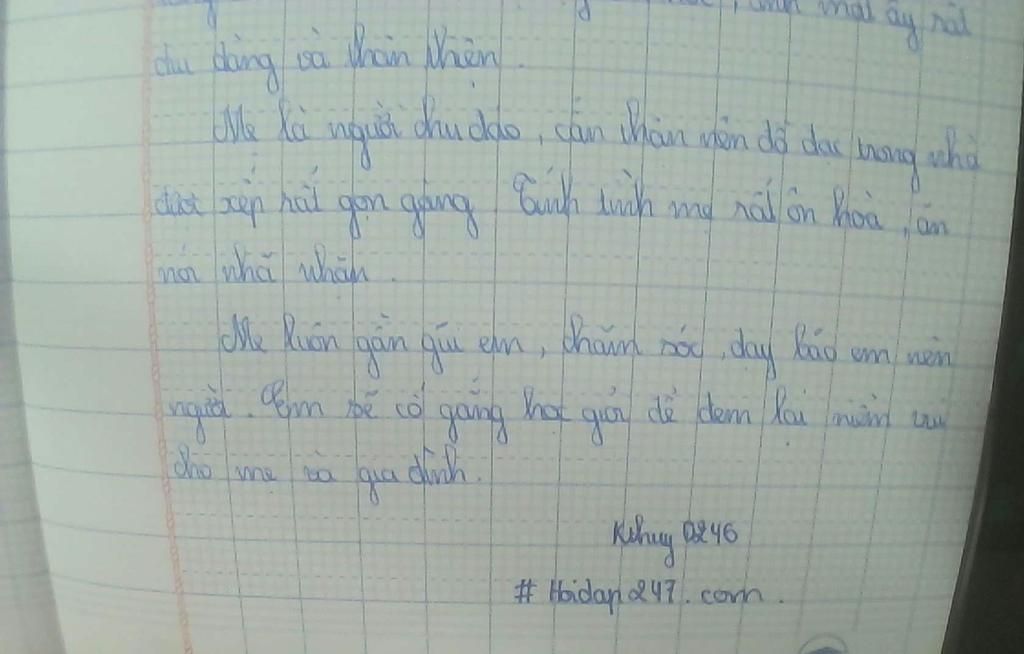 mắt ấy rất
dịu dàng và thân thiện.
Mẹ là người chu đáo, cẩn thận nên đồ đạc trong nhà
được xếp rất gọn gàng Tính tình mẹ rất ôn hoà, ăn
nói nhã nhặn.
Mẹ luôn gần gũi em, chăm sóc, dạy bảo em nên
người. Em sẽ cố gắng học giỏi để đem lại niềm vui
cho mẹ và gia đình.
Kshuy0246
# Hoidap247.com.